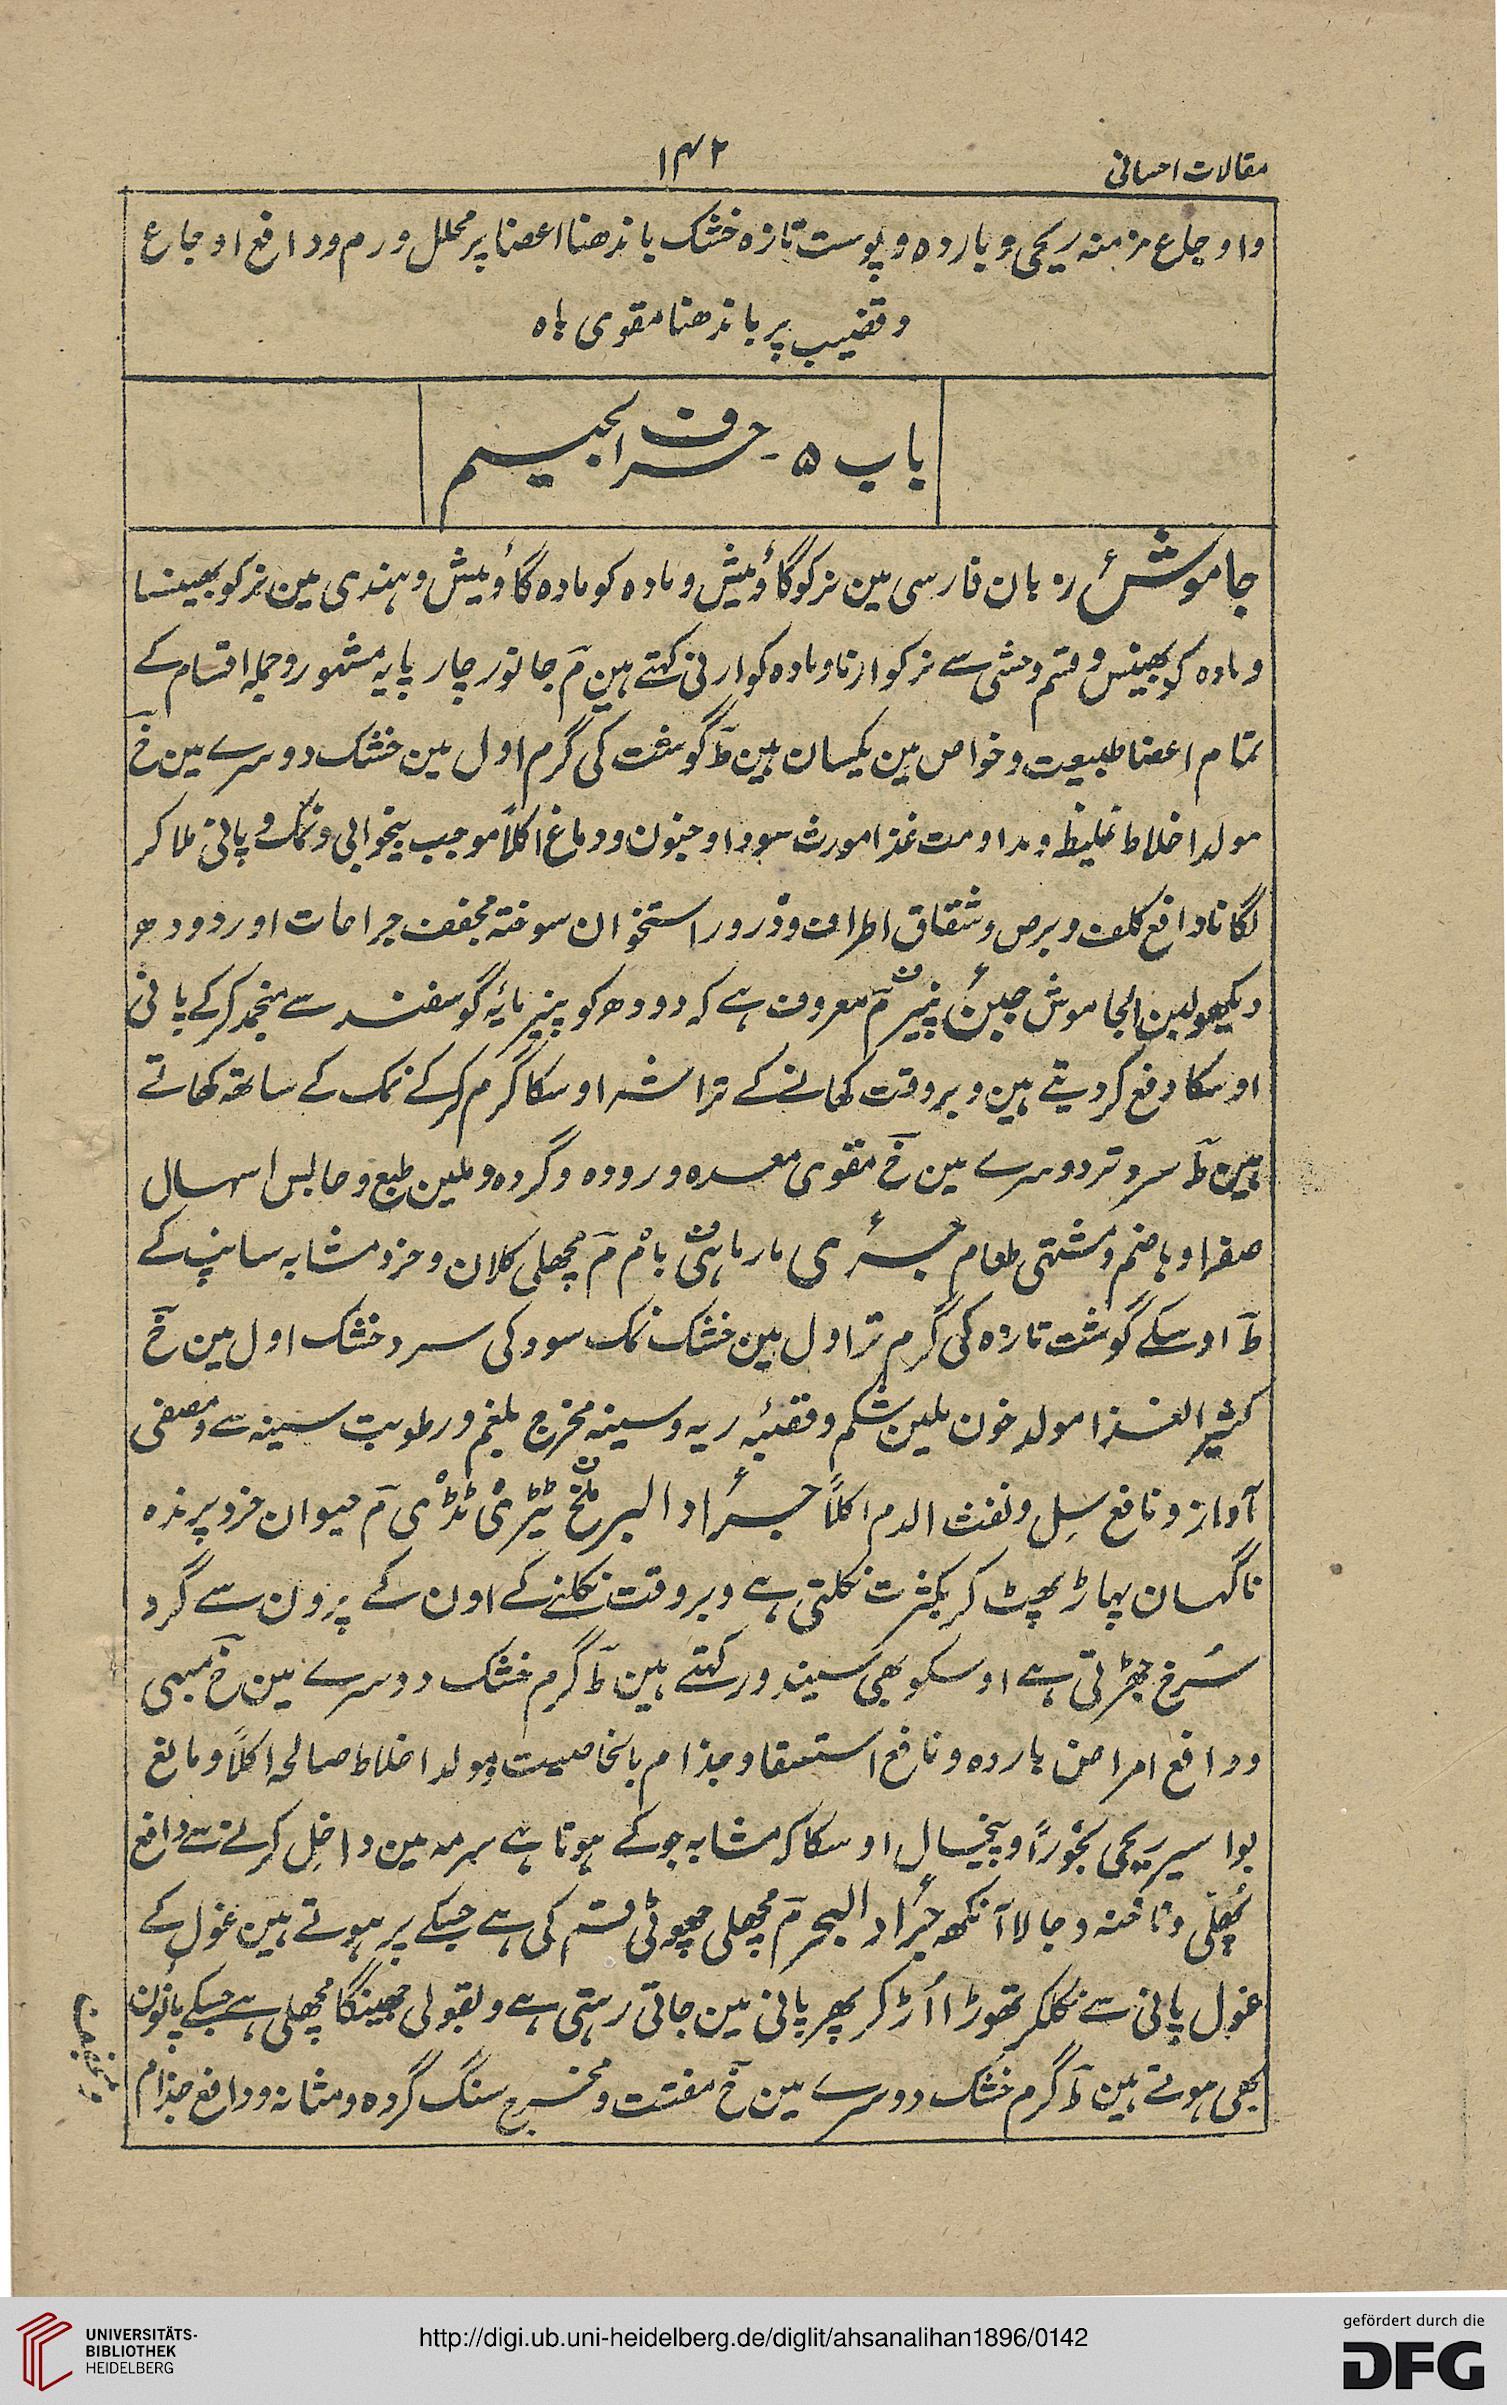 مقالات احسانی
۱۴۲
واوجاع مزمنہ ریحی و باردہ و پوست تازہ خشک باندھنا اعضا پر محلل ورم ودافع اوجاع
وقضیب پر باندھنا مقوی باہ
باب ۵ - حرف الجیم
جاموش زبان فارسی مین نرکو گاؤمیش ومادہ کو مادہ گاؤمیش وہندی مین نرکو بھینسا
ومادہ کو بھینس وقسم وحشی سے نرکو ارنا ومادہ کو ارنی کہتے ہین مَ جانور چارپایہ مشہور وجملہ اقسام کے
تمام اعضا طبیعت وخواص مین یکسان ہین طَ گوشت کی گرم اول مین خشک دوسرے مین خَ
مولد اخلاط غلیظ ومداومت غذا مورث سودا وجنون ودماغ اکلاً موجب بیخوابی ونمک و پانی ملاکر
لگانا دافع کلف وبرص وشقاق اطراف وذرور استخوان سوختہ مجفف جراحات اور دودھ
دیکھو لبن الجاموش جبن پنیر مَ معروف ہے کہ دودھ کو پنیر مایۂ گوسفند سے منجمد کرکے پانی
اوسکا دفع کردیتے ہین وبروقت کھانے کے تراشہ اوسکا گرم کرکے نمک کے ساتھ کھاتے
ہین طَ سرد تر دوسرے مین خَ مقوی معدہ ورودہ وگردہ وملین طبع وحابس اسہال
صفرا وہاضم ومشتہی طعام جری مارماہی بام مَ مچھلی کلان وخرد مشابہ سانپ کے
طَ اوسکے گوشت تازہ کی گرم تر اول مین خشک نمک سود کی سرد خشک اول مین خَ
کثیر الغذا مولد خون ملین شکم وقصبۂ ریہ وسینہ مخرج بلغم ورطوبت سینہ سے ومصفی
آواز ونافع سل ونفث الدم اکلاً جراد البر ملخ ٹیڑی ٹڈی مَ حیوان خرد پرندہ
ناگہان پہاڑ پھٹ کر بکثرت نکلتی ہے وبروقت نکلنے کے اون کے پرون سے گرد
سُرخ جھڑتی ہے اوسکو بھی سیندور کہتے ہین طَ گرم خشک دوسرے مین خَ مبہی
ودافع امراض باردہ ونافع استسقا وجذام بالخاصیت ومولد اخلاط صالحہ اکلاً ومانع
بواسیر ریحی بخوراً وپیخال اوسکا کہ مشابہ جو کے ہوتا ہے سرمہ مین داخل کرنے سے دافع
پُھلّی وناخنہ وجالا آنکھ جراد البحر مَ مچھلی چھوٹی قسم کی ہے جسکے پر ہوتے ہین غول کے
غول پانی سے نکلکر تھوڑا اُڑکر پھر پانی مین جاتی رہتی ہے وبقولی جھینگا مچھلی ہے جسکے پانون
بھی ہوتے ہین طَ گرم خشک دوسرے مین خَ مفتت ومخرج سنگ گردہ ومثانہ ودافع جذام
UNIVERSITÄTS-
BIBLIOTHEK
HEIDELBERG
http://digi.ub.uni-heidelberg.de/diglit/ahsanalihan1896/0142
gefördert durch die
DFG